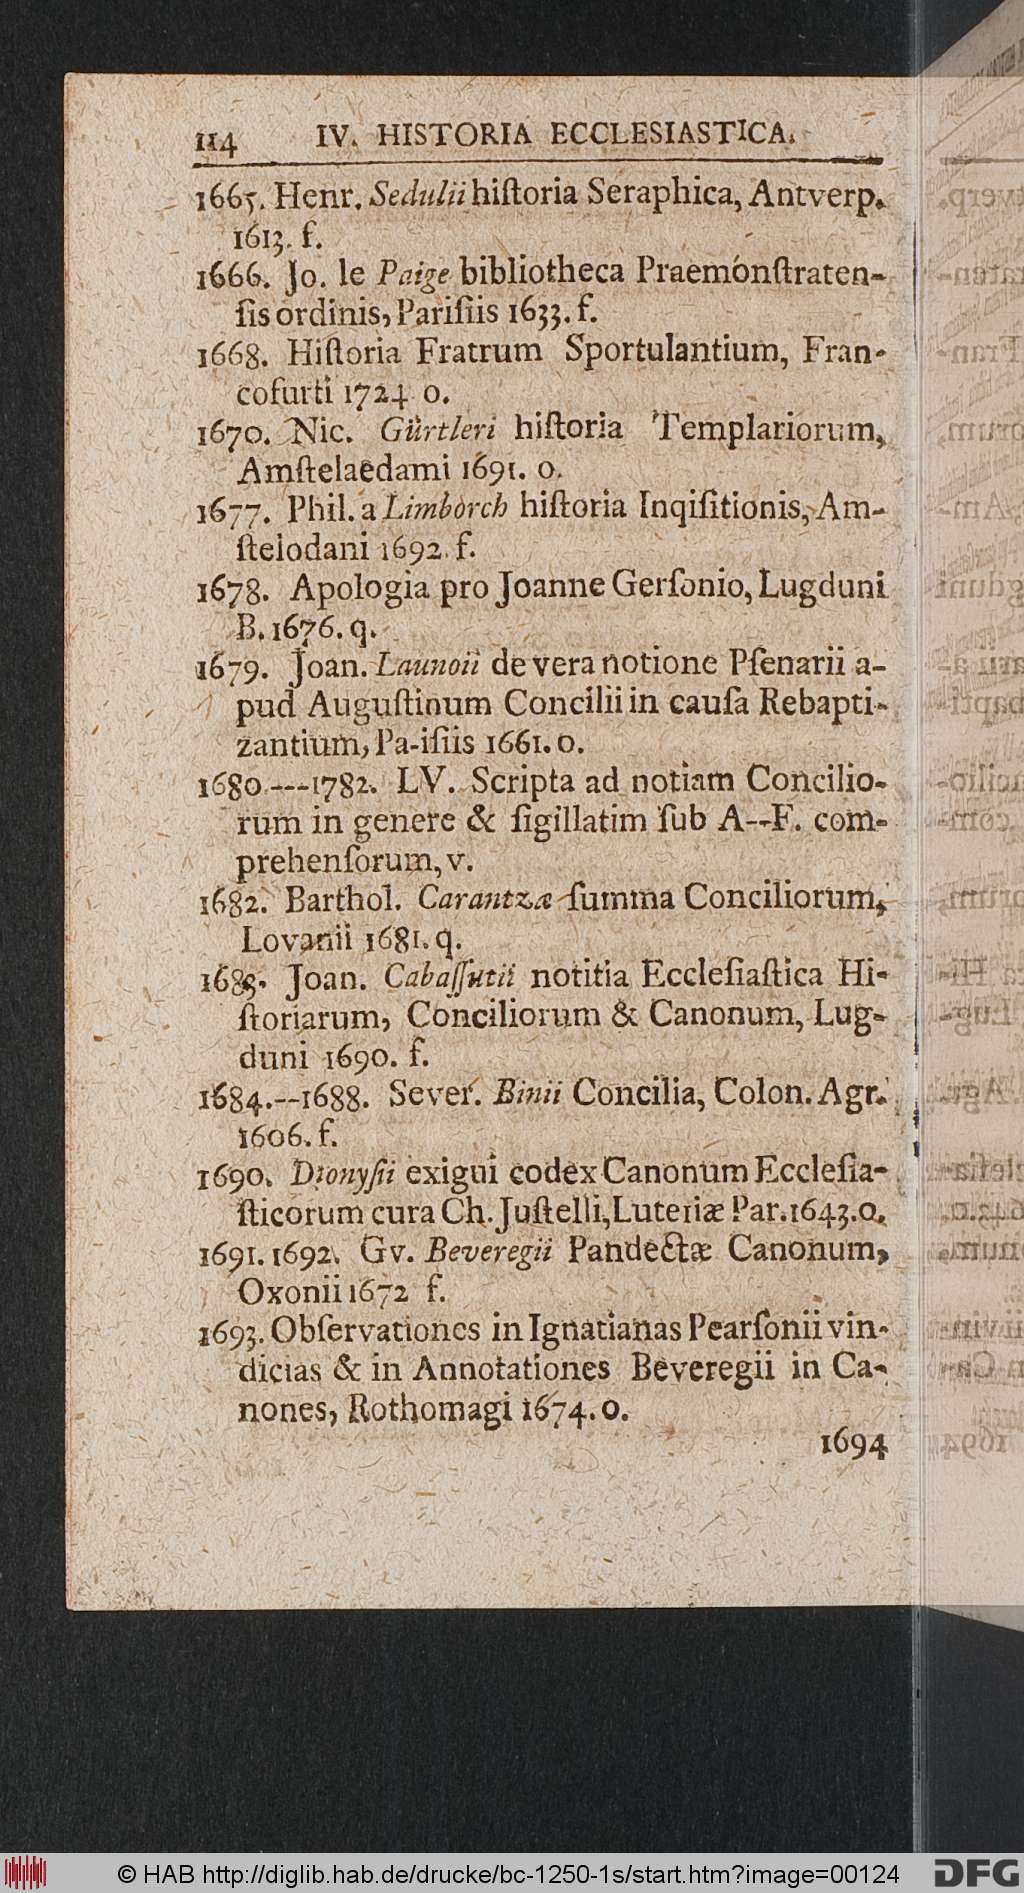 114 IV. HISTORIA ECCLESIASTICA.
1665. Henr. Sedulii hiſtoria Seraphica, Antverp.
1613. f.
1666. Jo. le Paige bibliotheca Praemonſtraten-
ſis ordinis, Pariſiis 1633. f.
1668. Hiſtoria Fratrum Sportulantium, Fran-
cofurti 1724 o.
1670. Nic. Gürtleri hiſtoria Templariorum,
Amſtelaedami 1691. o.
1677. Phil. a Limborch hiſtoria Inqiſitionis, Am-
ſtelodani 1692. f.
1678. Apologia pro Joanne Gerſonio, Lugduni
B. 1676. q.
1679. Joan. Launoii de vera notione Pſenarii a-
pud Auguſtinum Concilii in cauſa Rebapti-
zantium, Pa-iſiis 1661. o.
1680.---1782. LV. Scripta ad notiam Concilio-
rum in genere & ſigillatim ſub A--F. com-
prehenſorum, v.
1682. Barthol. Carantzæ ſumma Conciliorum,
Lovanii 1681. q.
1683. Joan. Cabaſſutii notitia Eccleſiaſtica Hi-
ſtoriarum, Conciliorum & Canonum, Lug-
duni 1690. f.
1684.--1688. Sever. Binii Concilia, Colon. Agr.
1606. f.
1690. Dionyſii exigui codex Canonum Eccleſia-
ſticorum cura Ch. Juſtelli, Luteriæ Par. 1643. o.
1691. 1692. Gv. Beveregii Pandectæ Canonum,
Oxonii 1672 f.
1693. Obſervationes in Ignatianas Pearſonii vin-
dicias & in Annotationes Beveregii in Ca-
nones, Rothomagi 1674. o.
1694
© HAB http://diglib.hab.de/drucke/bc-1250-1s/start.htm?image=00124
DFG